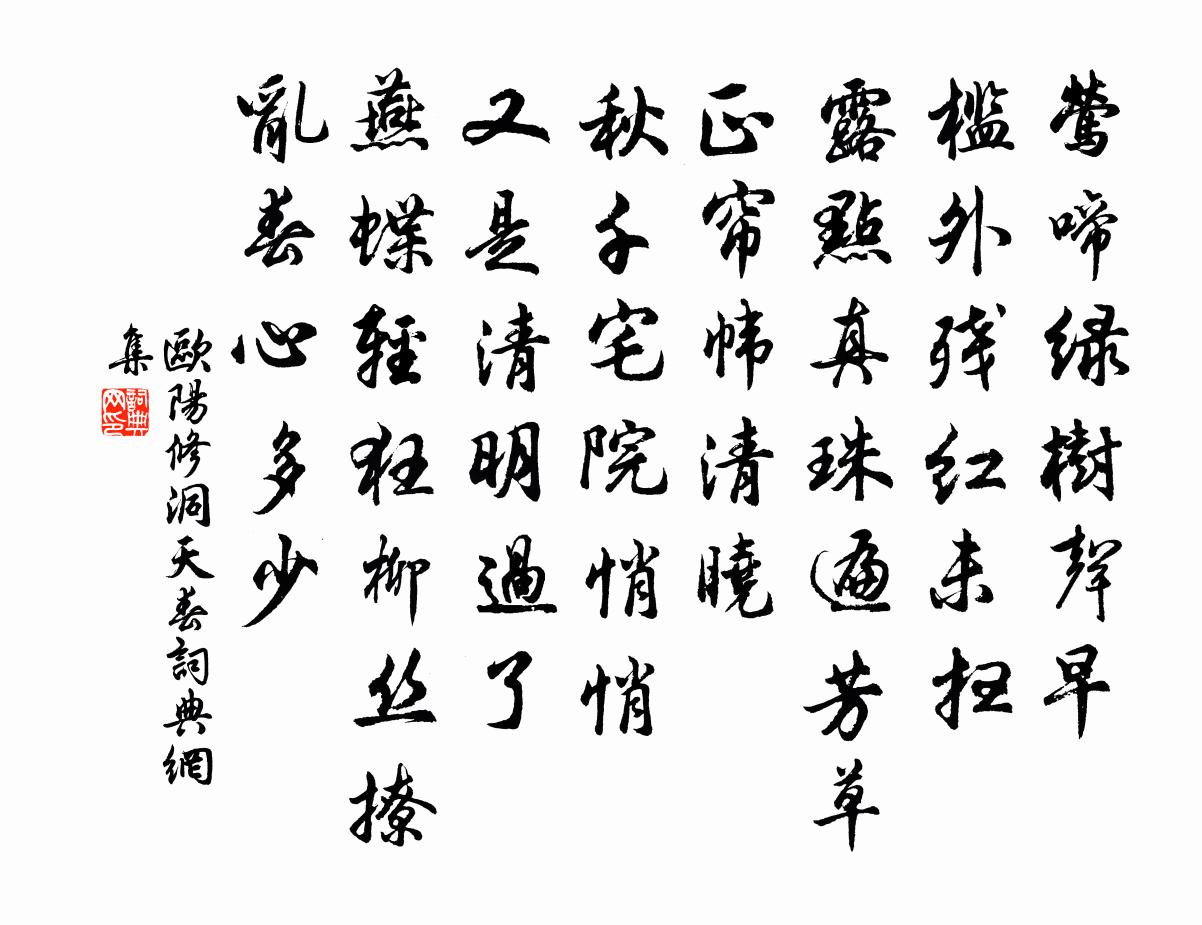 莺啼緑樹聲早
槛外残红未扫
露點真珠遍芳草
正帘帏清曉
秋千宅院悄悄
又是清明過了
燕蝶輕狂柳丝撩
亂春心多少
歐陽修洞天春詞典網
集
詞典網印